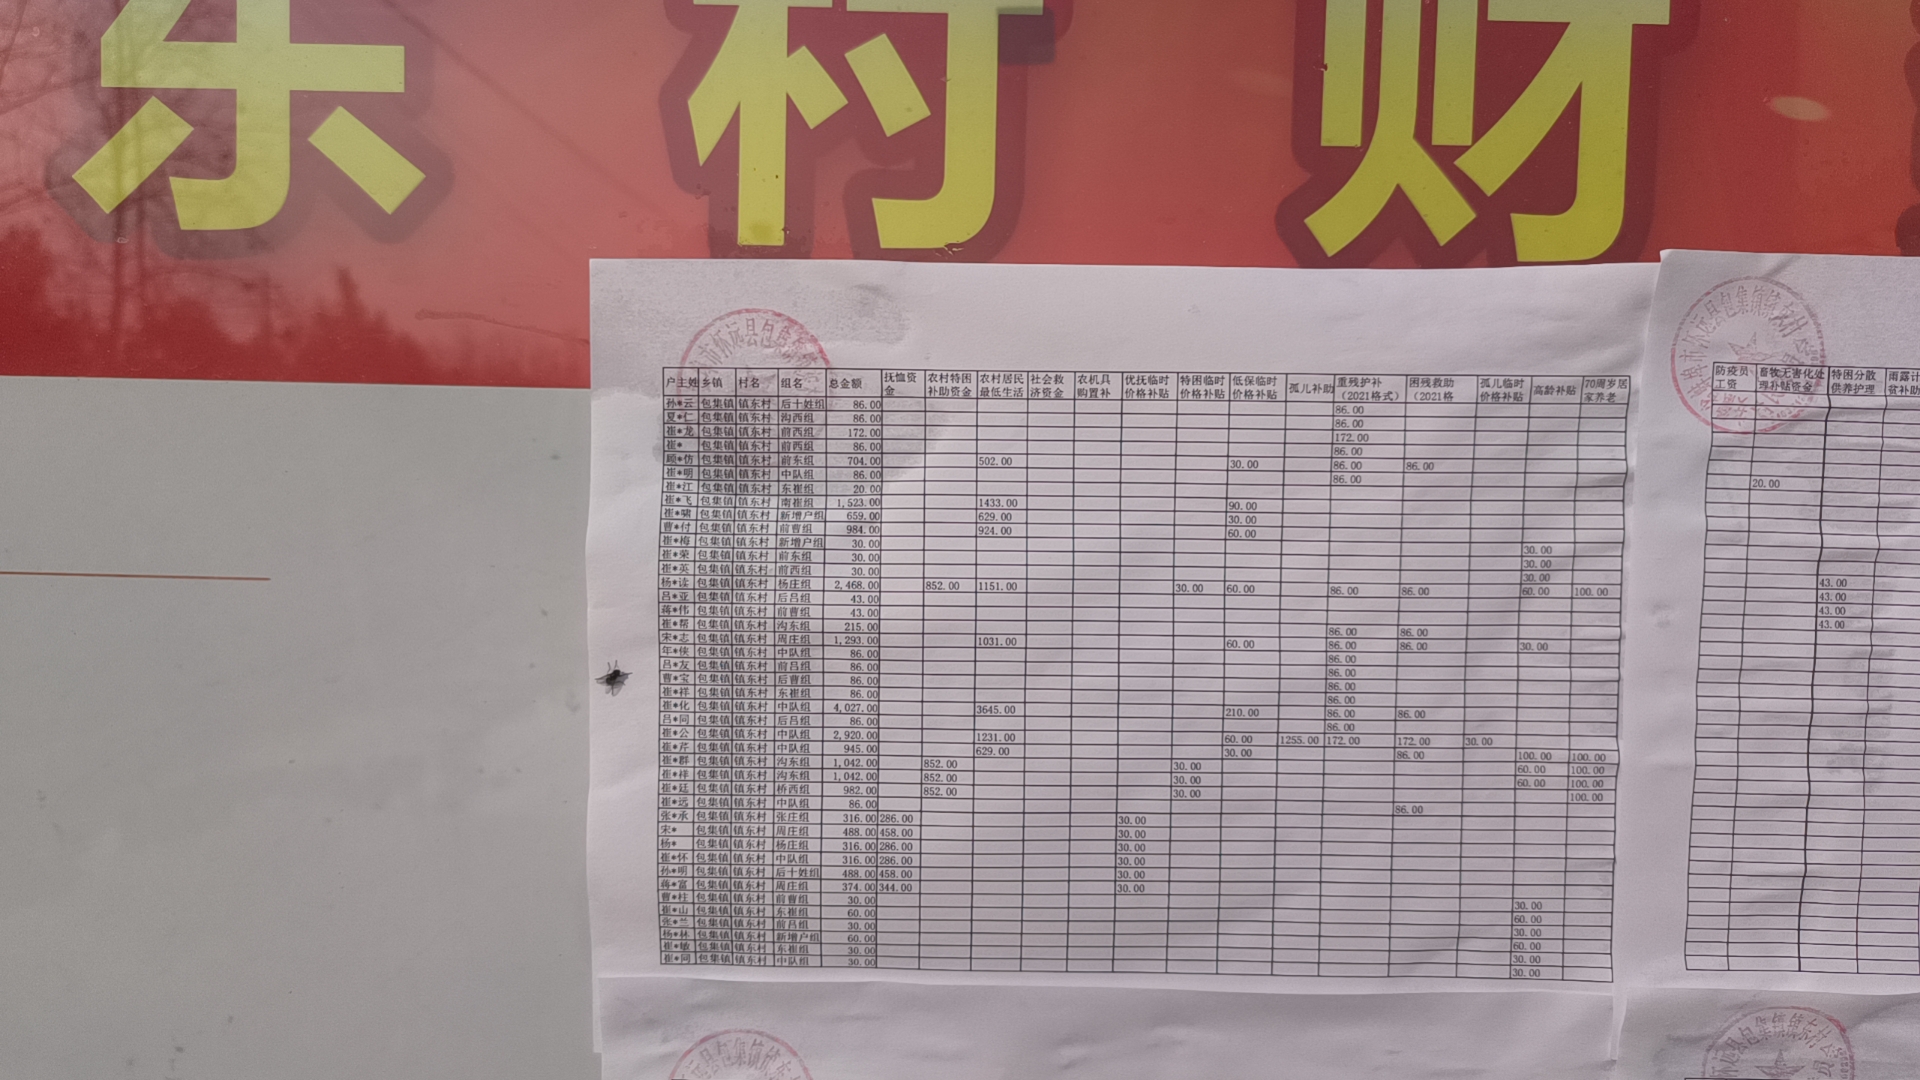 东村财
户主姓 乡镇 村名 组名 总金额 抚恤资金 农村特困补助资金 农村居民最低生活 社会救济资金 农机具购置补 优抚临时价格补贴 特困临时价格补贴 低保临时价格补贴 孤儿补助 重残护补（2021格式） 困残救助（2021格 孤儿临时价格补贴 高龄补贴 70周岁居家养老
孙*云 包集镇 镇东村 后十姓组 86.00 86.00
夏*仁 包集镇 镇东村 沟西组 86.00 86.00
崔*龙 包集镇 镇东村 前西组 172.00 172.00
崔* 包集镇 镇东村 前西组 86.00 86.00
顾*仿 包集镇 镇东村 前东组 704.00 502.00 30.00 86.00 86.00
崔*明 包集镇 镇东村 中队组 86.00 86.00
崔*江 包集镇 镇东村 东崔组 20.00
崔*飞 包集镇 镇东村 南崔组 1,523.00 1433.00 90.00
崔*啸 包集镇 镇东村 新增户组 659.00 629.00 30.00
曹*付 包集镇 镇东村 前曹组 984.00 924.00 60.00
崔*梅 包集镇 镇东村 新增户组 30.00 30.00
崔*荣 包集镇 镇东村 前东组 30.00 30.00
崔*英 包集镇 镇东村 前西组 30.00 30.00
杨*读 包集镇 镇东村 杨庄组 2,468.00 852.00 1151.00 30.00 60.00 86.00 86.00 60.00 100.00
吕*亚 包集镇 镇东村 后吕组 43.00
蒋*伟 包集镇 镇东村 前曹组 43.00
崔*帮 包集镇 镇东村 沟东组 215.00 86.00 86.00
宋*志 包集镇 镇东村 周庄组 1,293.00 1031.00 60.00 86.00 86.00 30.00
年*侠 包集镇 镇东村 中队组 86.00 86.00
吕*友 包集镇 镇东村 前吕组 86.00 86.00
曹*宝 包集镇 镇东村 后曹组 86.00 86.00
崔*祥 包集镇 镇东村 东崔组 86.00 86.00
崔*化 包集镇 镇东村 中队组 4,027.00 3645.00 210.00 86.00 86.00
吕*同 包集镇 镇东村 后吕组 86.00 86.00
崔*公 包集镇 镇东村 中队组 2,920.00 1231.00 60.00 1255.00 172.00 172.00 30.00
崔*芹 包集镇 镇东村 中队组 945.00 629.00 30.00 86.00 100.00 100.00
崔*群 包集镇 镇东村 沟东组 1,042.00 852.00 30.00 60.00 100.00
崔*祥 包集镇 镇东村 沟东组 1,042.00 852.00 30.00 60.00 100.00
崔*廷 包集镇 镇东村 桥西组 982.00 852.00 30.00 100.00
崔*远 包集镇 镇东村 中队组 86.00 86.00
张*承 包集镇 镇东村 张庄组 316.00 286.00 30.00
宋* 包集镇 镇东村 周庄组 488.00 458.00 30.00
杨* 包集镇 镇东村 杨庄组 316.00 286.00 30.00
崔*怀 包集镇 镇东村 中队组 316.00 286.00 30.00
孙*明 包集镇 镇东村 后十姓组 488.00 458.00 30.00
蒋*富 包集镇 镇东村 周庄组 374.00 344.00 30.00
曹*柱 包集镇 镇东村 前曹组 30.00 30.00
崔*山 包集镇 镇东村 东崔组 60.00 60.00
张*兰 包集镇 镇东村 前吕组 30.00 30.00
杨*林 包集镇 镇东村 新增户组 60.00 60.00
崔*敏 包集镇 镇东村 东崔组 30.00 30.00
崔*同 包集镇 镇东村 中队组 30.00 30.00
防疫员工资 畜牧无害化处理补贴资金 特困分散供养护理 雨露计
20.00
43.00
43.00
43.00
43.00